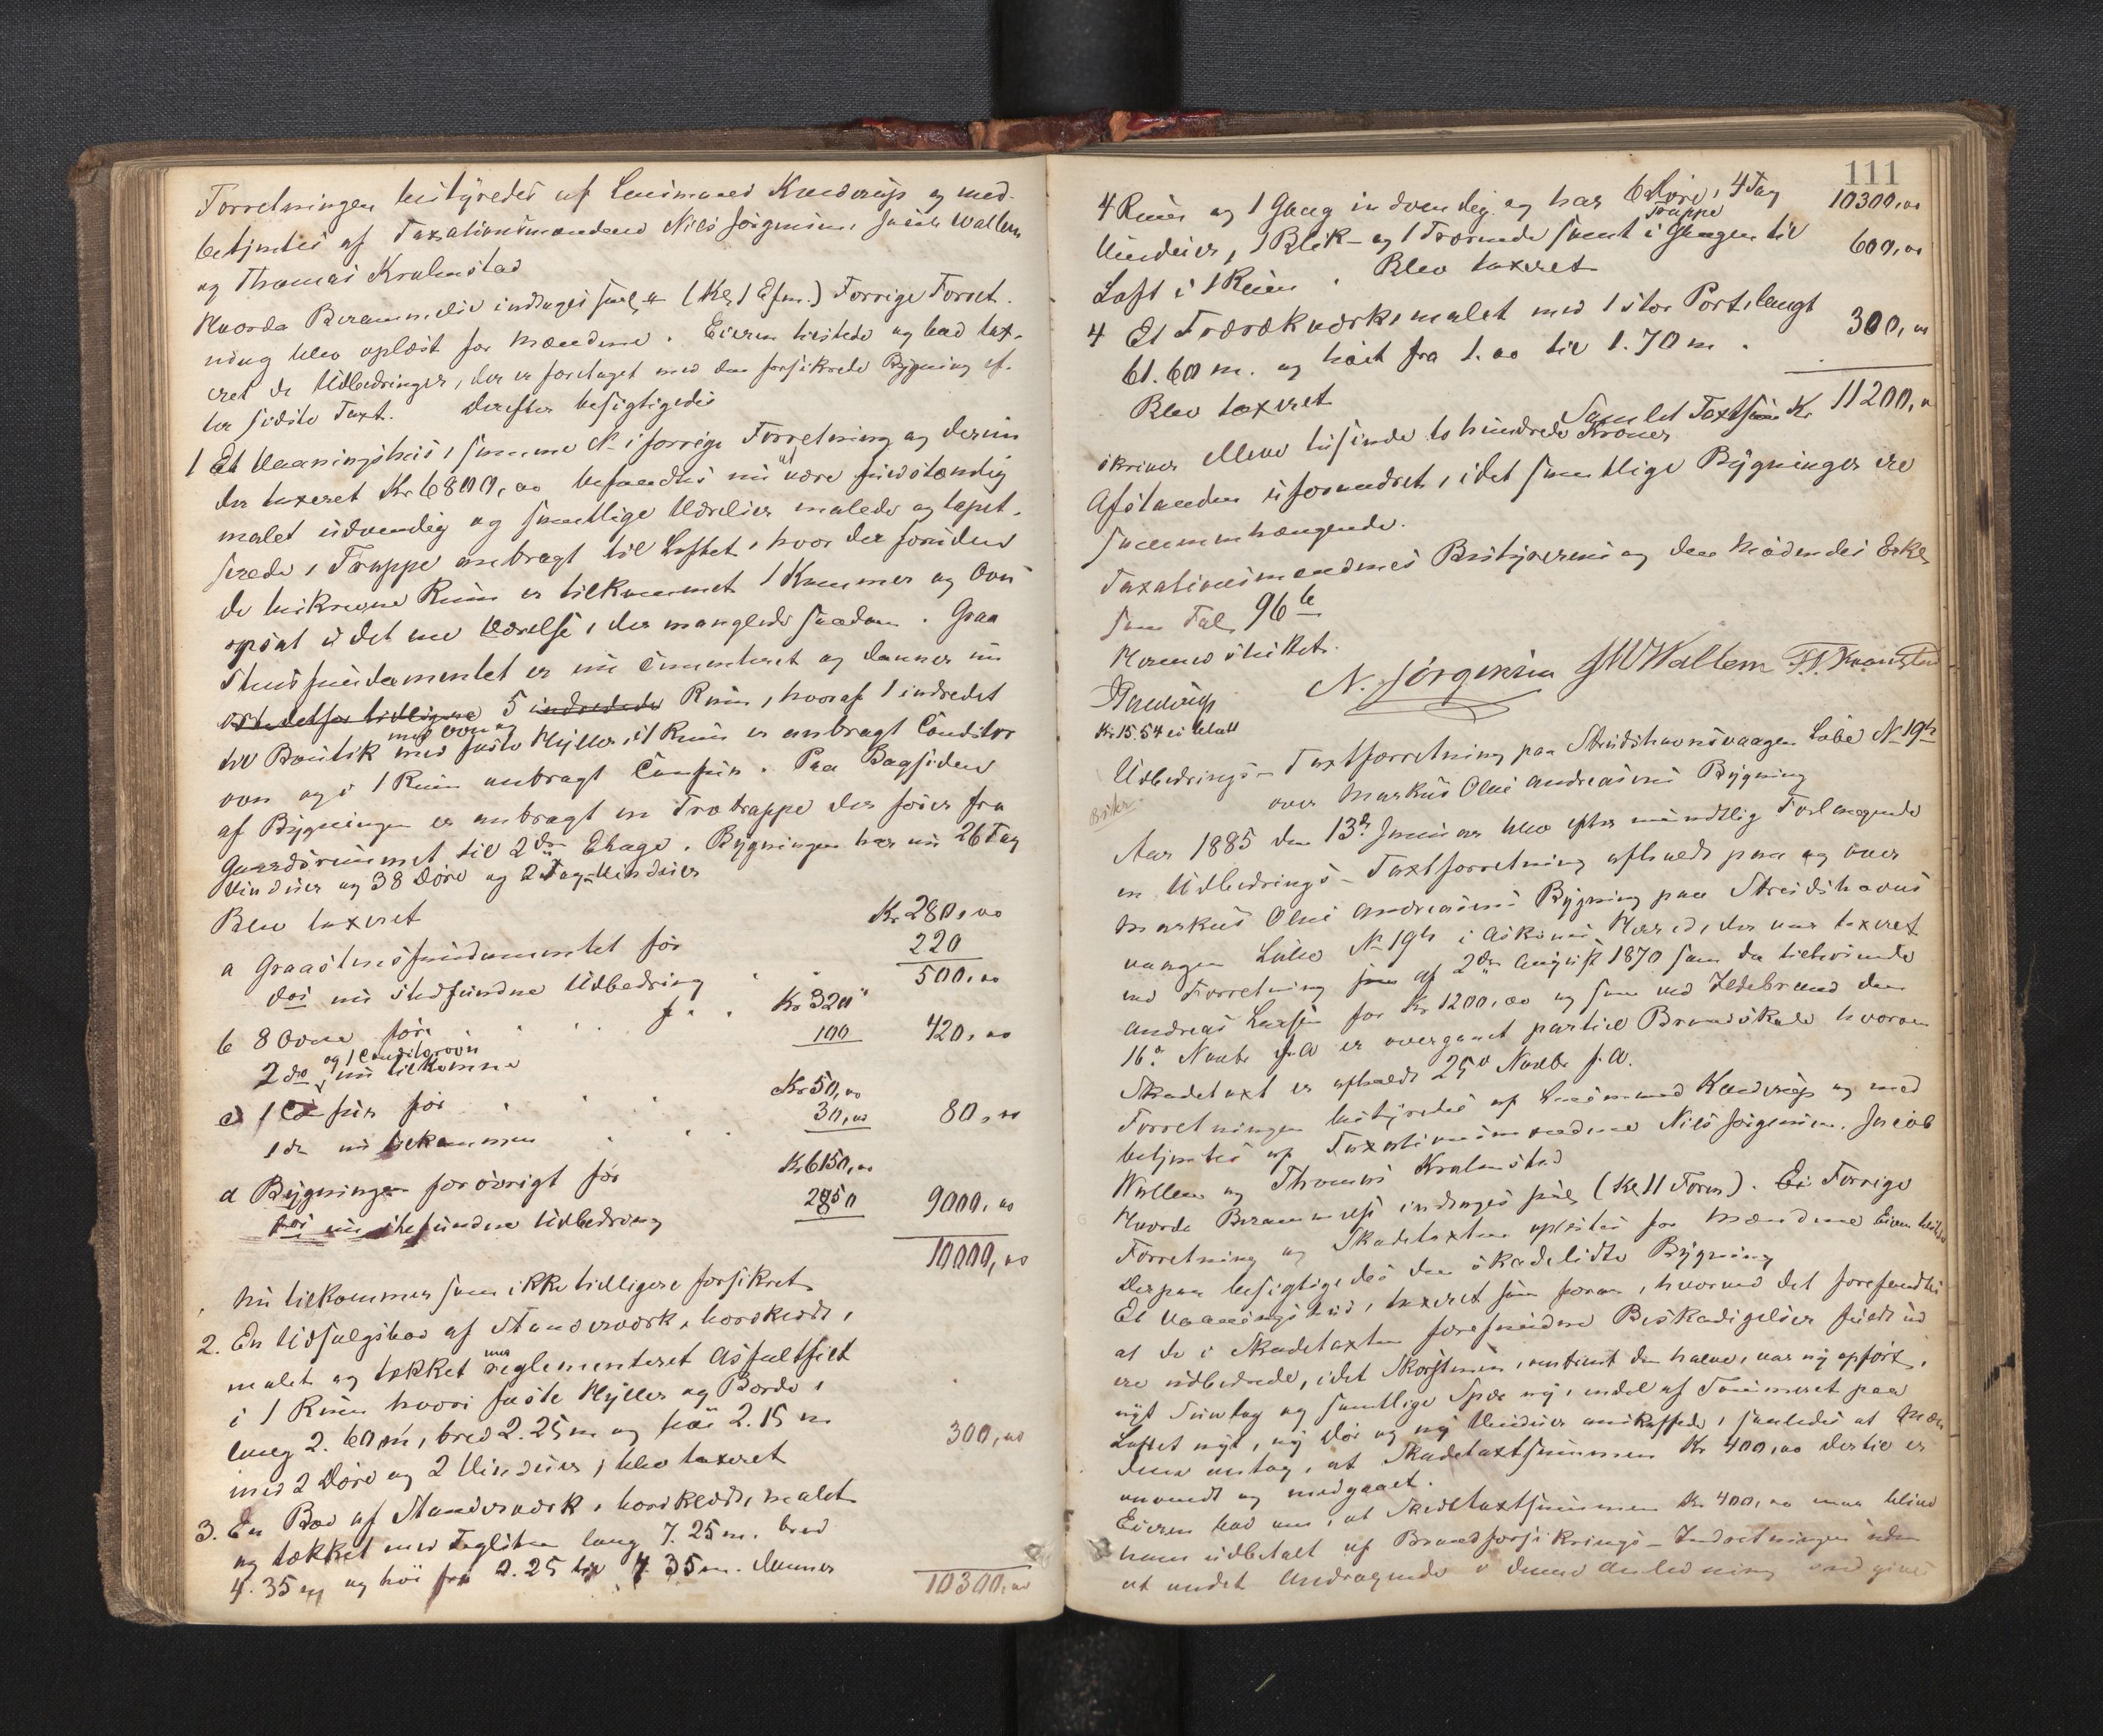 Forretningen bestyredes af Lensmand Knudsrup og med-
betjentes af Taxationsmændene Nils Jørgensen, Jacob Wallem
og Thomas Kralmstad
Hvorda Berammelse indtages (Kl 1 Efm.) Forrige Forret-
ning blev oplæst for Mændene. Eieren tilstede og bad tax-
eret de Udbedringer, der er foretaget med den forsikrede Bygning ef-
ter sidste Taxt. Derefter besigtigedes
1 Et Vaaningshus, samme No i forrige Forretning og derun
der taxeret Kr 6800,00 befandtes nu at være fuldstændig
malet udvendig og samtlige Værelser malede og tapet-
serede, Trappe anbragt til Loftet, hvor der foruden
de beskrevne Rum er tilkommet 1 Kammer og Ovn
opsat i det ene Værelse, der manglede saadan. Graa
stensfundamentet er nu cementeret og danner nu
5 indredede Rum, hvoraf 1 indredet
til Boutik med Ovn og med faste Hyller, i 1 Rum er anbragt Conditor
ovn og i 1 Rum anbragt Comfur. Paa Bagsiden
af Bygningen er anbragt en Trætrappe der fører fra
Gaardsrummet til 2den Etage. Bygningen har nu 26 Fag
Vinduer og 38 Døre og 2 Tag-Vinduer
Blev taxeret
a Graastensfundamentet før Kr 280,00
for nu stedfundne Udbedring 220 500,00
b 8 Ovne før Kr 320"
2 do og 1 Conditorovn nu tilkomne 100 420,00
c 1 Comfur før Kr 50,00
1 do nu tilkommen 30,00 80,00
d Bygningen forøvrigt før Kr 6150,00
for nu stedfundne Udbedring 2850 9000,00
10000,00
Nu tilkommer som ikke tidligere forsikret
2. En Udsalgsbod af Standerværk, bordklædt,
malet og tækket med reglementeret Asfaltfilt
i 1 Rum hvori faste Hyller og Borde,
lang 2.60 m, bred 2.25 m og høi 2.15 m
med 2 Døre og 2 Vinduer, blev taxeret 300,00
3. En Bod af Standerværk, bordklædt, malet
og tækket med Taglsten lang 7.25 m. bred
4.35 m og høi fra 2.25 til 4.35 m. danner
10300,00
111
4 Rum og 1 Gang indvendig og har 6 Døre, 4 Fag 10300,00
Vinduer, 1 Blik- og 1 Trærende samt Trappe i Gangen til
Loft i 1 Rum. Blev taxeret 600,00
4 Et Trærækværk, malet med 1 stor Port, langt
61.60 m. og høit fra 1.00 til 1.70 m.
Blev taxeret 300,00
Samlet Taxtsum Kr 11200,00
skriver elleve tusinde to hundrede Kroner
Afstanden uforandret, idet samtlige Bygninger ere
sammenhængende.
Taxationsmændenes Bestyrerens og den Mødendes
96
Herved sluttet.
N. Jörgensen JW Wallem
Kr 15.54 er betalt
Udbedrings-Taxtforretning paa Strudshavnsvaagen Løbe No 19h
over Markus Olai Andreasens Bygning
Aar 1885 den 13de Januar blev efter mundtlig Forlangende
en Udbedrings-Taxtforretning afholdt paa og over
Markus Olai Andreasens Bygning paa Strudshavns
vaagen Løbe No 19h i Askøens Herred, der var taxeret
ved Forretning af 2den August 1870 som da tilhørende
Andreas Larsen for Kr 1200,00 og som ved Ildebrand den
16de Novbr f. A er overgaaet partiel Brandskade hvorom
Skadetaxt er afholdt 25de Novbr f. A.
Forretningen bestyredes af Lensmand Knudsrup og med
betjentes af Taxationsmændene Nils Jørgensen, Jacob
Wallem og Thomas Kralmstad
Hvorda Berammelse indtages (Kl 11 Form). Forrige
Forretning og Skadetaxten oplæstes for Mændene Eieren tilstede
Derpaa besigtigedes den skadelidte Bygning
Et Vaaningshus, taxeret som foran, hvorved det forefandtes
at de i Skadetaxten forefundne Beskadigelser fuldt ud
ere udbedrede, idet Skorstenen, omtrent den halve, var ny opført,
nyt Sutag og samtlige Spær ny, endel af Tømmeret paa
Loftet nyt, ny Dør og ny Vinduer anskaffede, saaledes at Mæn
dene antog, at Skadetaxtsummen Kr 400,00 dertil er
anvendt og medgaaet.
Eieren bad om, at Skadetaxtsummen Kr. 400,00 maa blive
ham udbetalt af Brandforsikrings-Indretningen uden
at andet Andragende i denne Anledning indgives